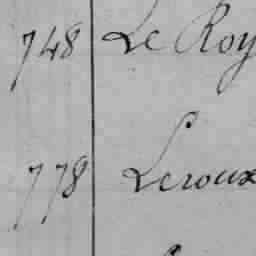 748 Le Roy
778 Leroux